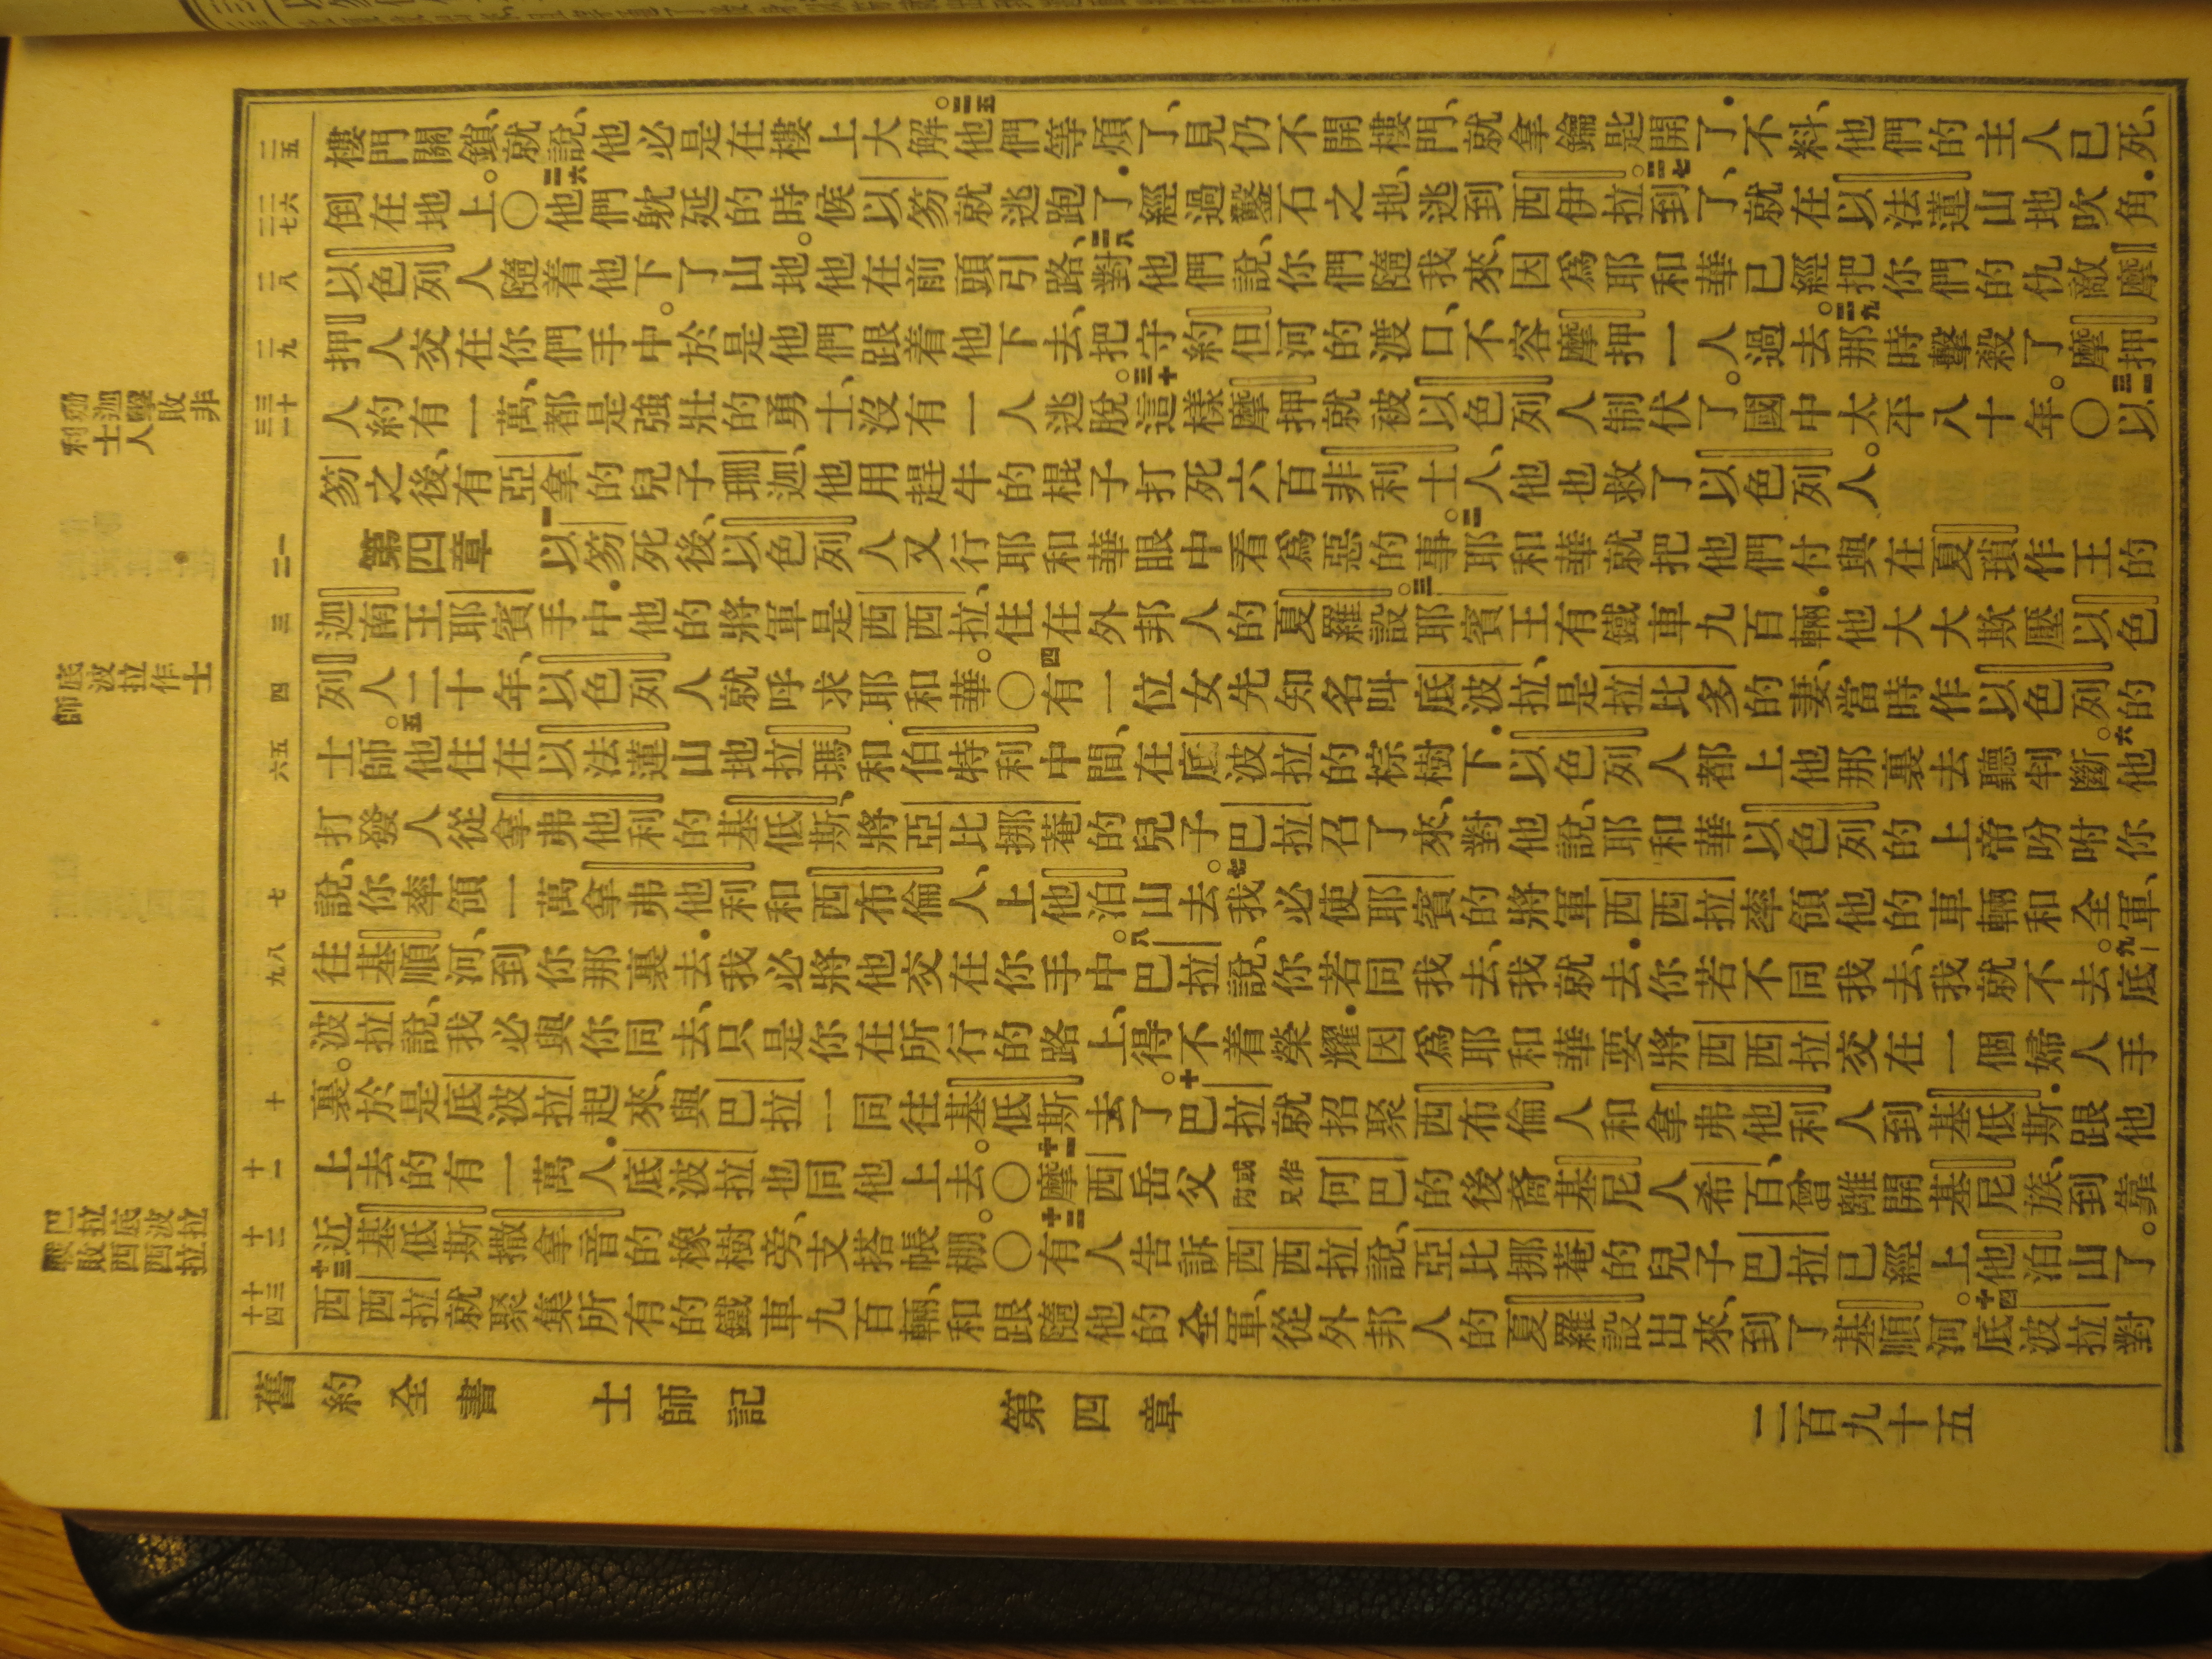 舊約全書 士師記 第四章 二百九十五
珊迦擊敗非
利士人
底波拉作士
師
巴拉底波拉
擊敗西西拉
二五
二六
二七
二八
二九
三十
三一
一
二
三
四
五
六
七
八
九
十
十一
十二
十三
十四
樓門關鎖、就說、他必是在樓上大解。二五他們等煩了、見仍不開樓門、就拿鑰匙開了．不料、他們的主人已死、
倒在地上。〇二六他們躭延的時候、以笏就逃跑了．經過鑿石之地、逃到西伊拉。二七到了、就在以法蓮山地吹角．
以色列人隨着他下了山地。他在前頭引路、二八對他們說、你們隨我來、因爲耶和華已經把你們的仇敵摩
押人交在你們手中。於是他們跟着他下去、把守約但河的渡口、不容摩押一人過去。二九那時擊殺了摩押
人約有一萬、都是強壯的勇士、沒有一人逃脫。三十這樣摩押就被以色列人制伏了。國中太平八十年。〇三一以
笏之後、有亞拿的兒子珊迦、他用趕牛的棍子打死六百非利士人、他也救了以色列人。
第四章 一以笏死後、以色列人又行耶和華眼中看爲惡的事。二耶和華就把他們付與在夏瑣作王的
迦南王耶賓手中．他的將軍是西西拉、住在外邦人的夏羅設。三耶賓王有鐵車九百輛．他大大欺壓以色
列人二十年、以色列人就呼求耶和華。〇四有一位女先知名叫底波拉、是拉比多的妻、當時作以色列的
士師。五他住在以法蓮山地拉瑪和伯特利中間、在底波拉的棕樹下．以色列人都上他那裏去聽判斷。六他
打發人從拿弗他利的基低斯、將亞比挪菴的兒子巴拉召了來、對他說、耶和華以色列的上帝吩咐你
說、你率領一萬拿弗他利和西布倫人、上他泊山去。七我必使耶賓的將軍西西拉率領他的車輛和全軍、
往基順河、到你那裏去．我必將他交在你手中。八巴拉說、你若同我去、我就去．你若不同我去、我就不去。九底
波拉說、我必與你同去、只是你在所行的路上、得不着榮耀．因爲耶和華要將西西拉交在一個婦人手
裏。於是底波拉起來、與巴拉一同往基低斯去了。十巴拉就招聚西布倫人和拿弗他利人到基低斯．跟他
上去的有一萬人．底波拉也同他上去。〇十一摩西岳父或作內兄何巴的後裔基尼人希百、曾離開基尼族、到靠
近基低斯撒拿音的橡樹旁、支搭帳棚。〇十二有人告訴西西拉說、亞比挪菴的兒子巴拉已經上他泊山了。
十三西西拉就聚集所有的鐵車九百輛、和跟隨他的全軍、從外邦人的夏羅設出來、到了基順河。十四底波拉對